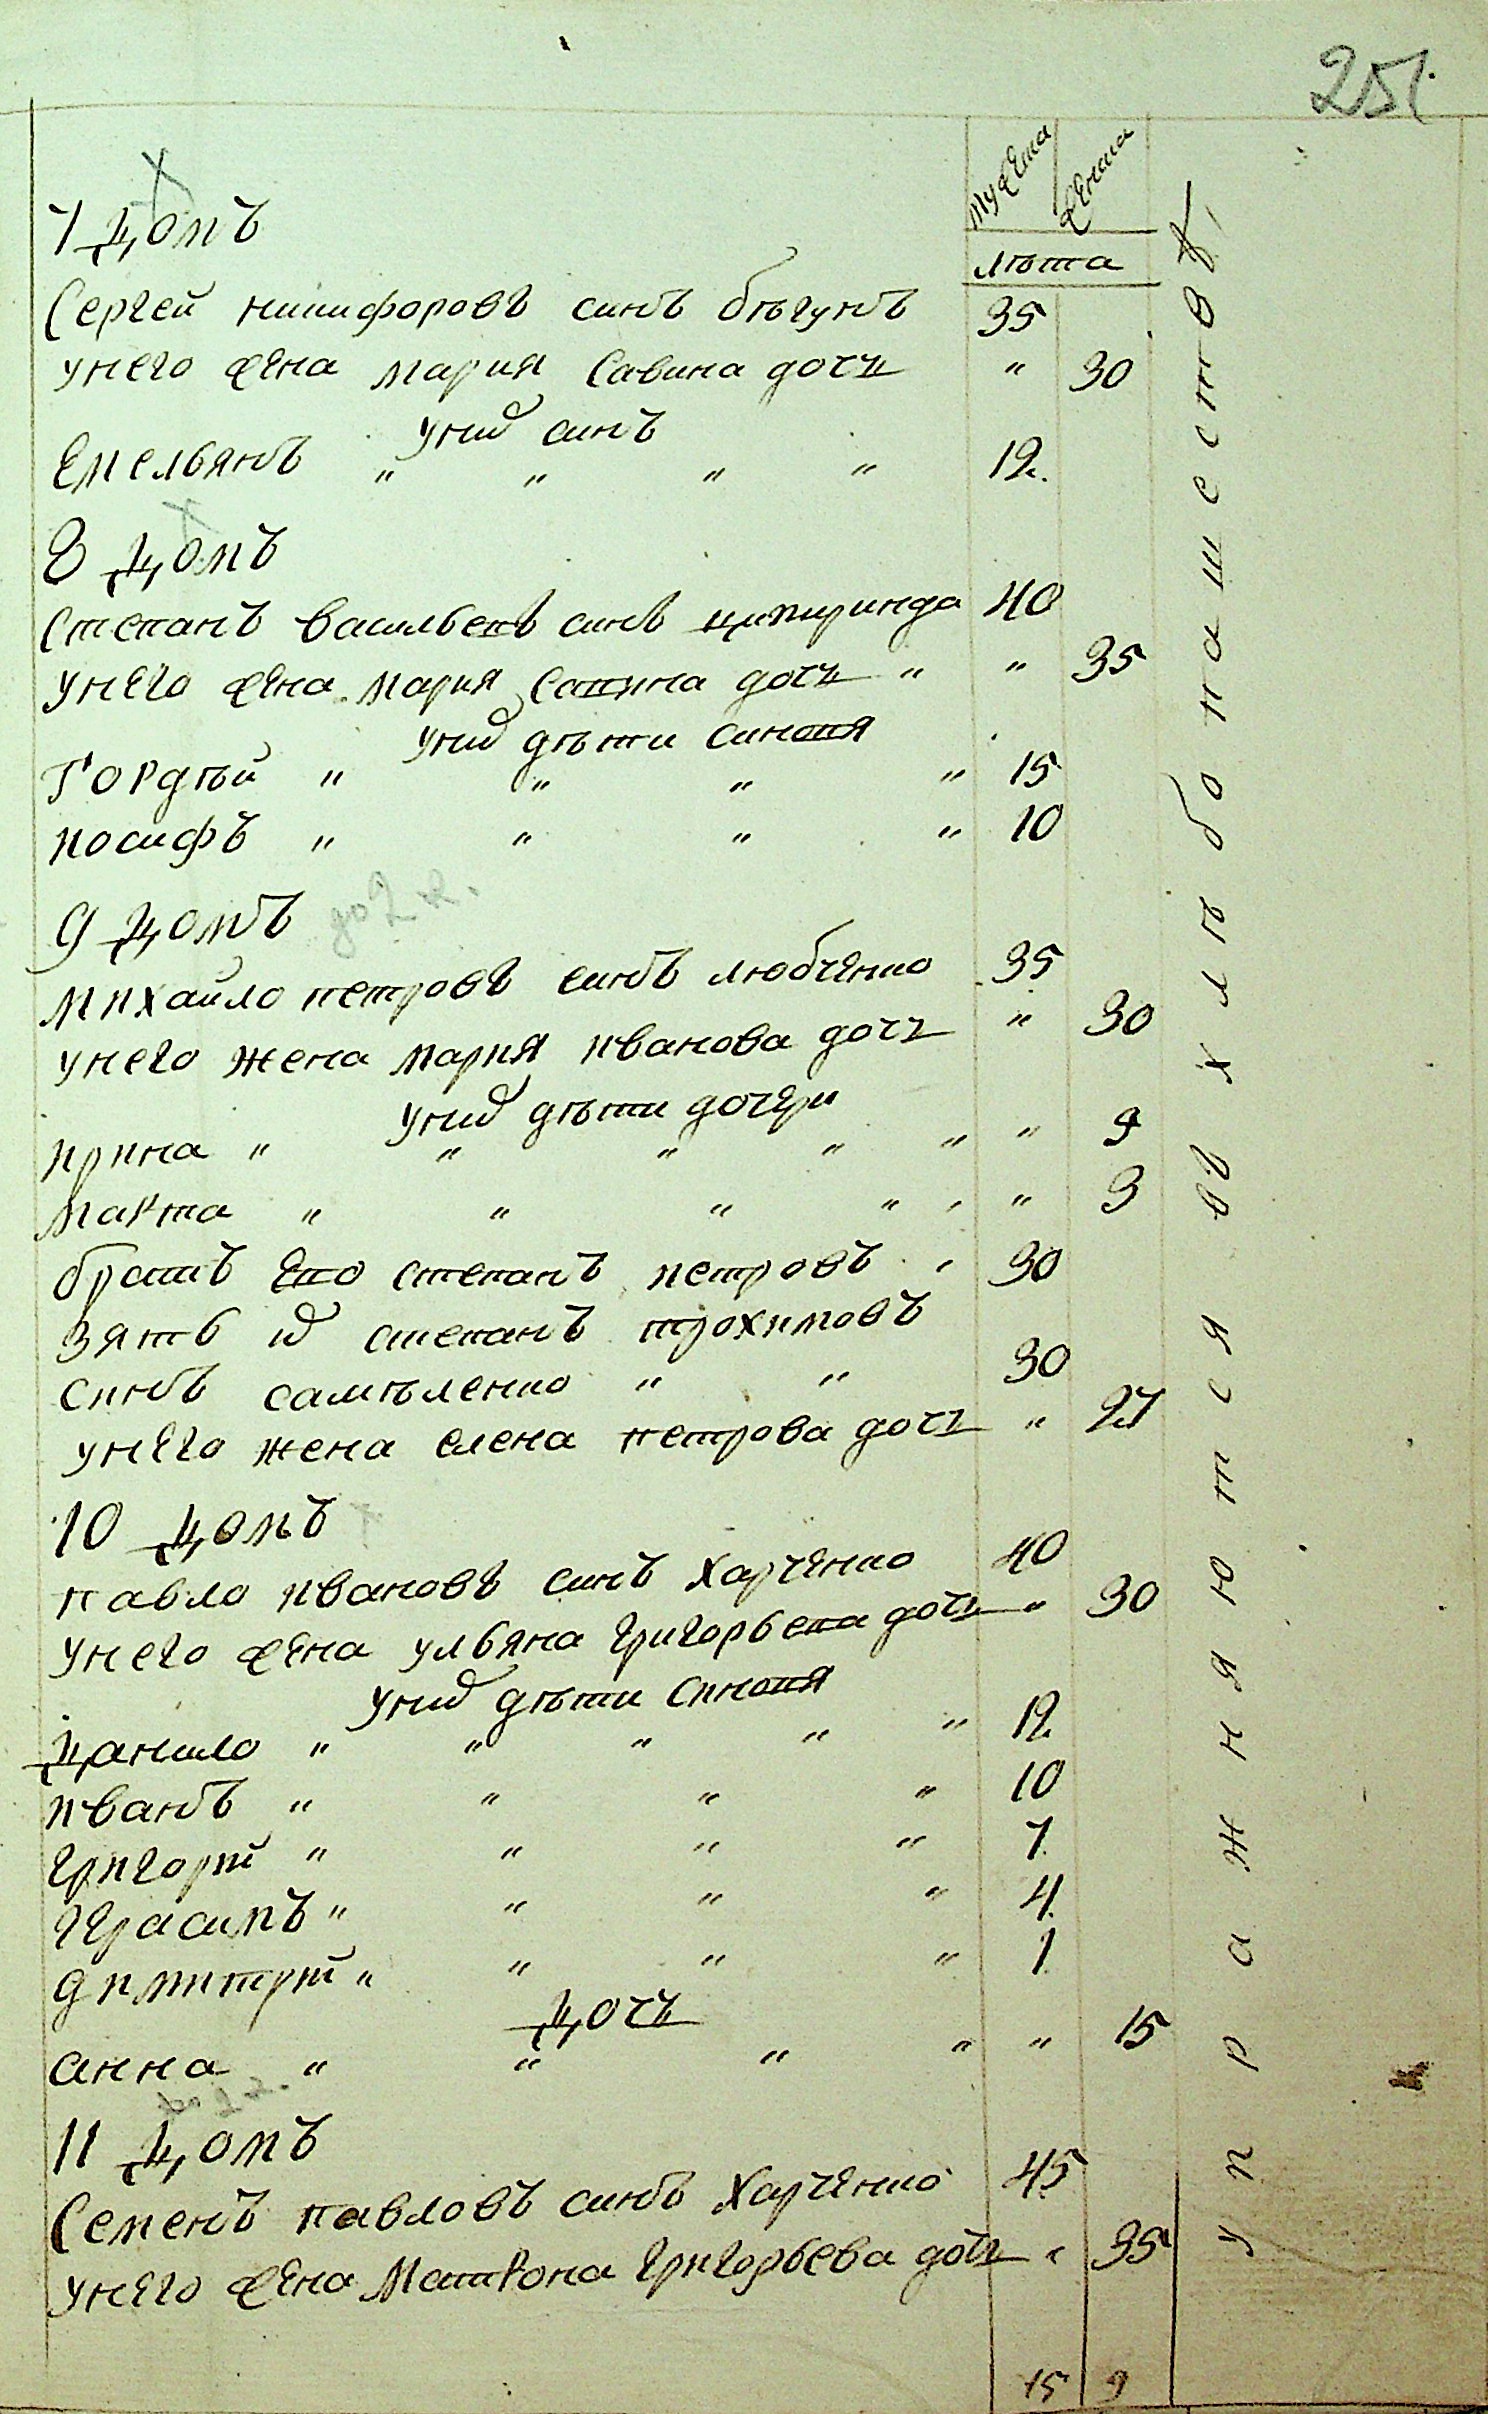 251.
мужеска женска
лѣта
7 Домъ
Сергей никифоровъ синъ бѣгунъ 35
унего жена мария Савина дочъ " 30
уних синъ
Емельянъ " " " " 12.
8 Домъ
Степанъ васильевъ синъ 40
унего жена мария Савина дочъ " " 35
уних дѣти синовя
Гордѣй " " " " 15
иосифъ " " " " 10
9 Домъ
михайло петровъ синъ любченко 35
унего жена мария иванова дочъ " 30
уних дѣти дочери
ирина " " " " " " 9
Марта " " " " " " 3
братъ Его степанъ петровъ " 30
зять их степанъ трохимовъ
синъ самѣленко " " 30
унего жена елена петрова дочъ " 27
10 Домъ
павло ивановъ синъ Харченко 40
унего жена ульяна григорьева дочъ " 30
уних дѣти синовя
Данило " " " " " 12
иванъ " " " " 10
григорій " " " " 7.
герасимъ " " " " 4.
димитрій " " " " 1.
Дочъ
анна " " " " " 15
11 Домъ
Семенъ павловъ синъ Харченко 45
унего жена Матрона григорьева дочъ " 35
15 9
упражняются въ хлѣбопашествѣ